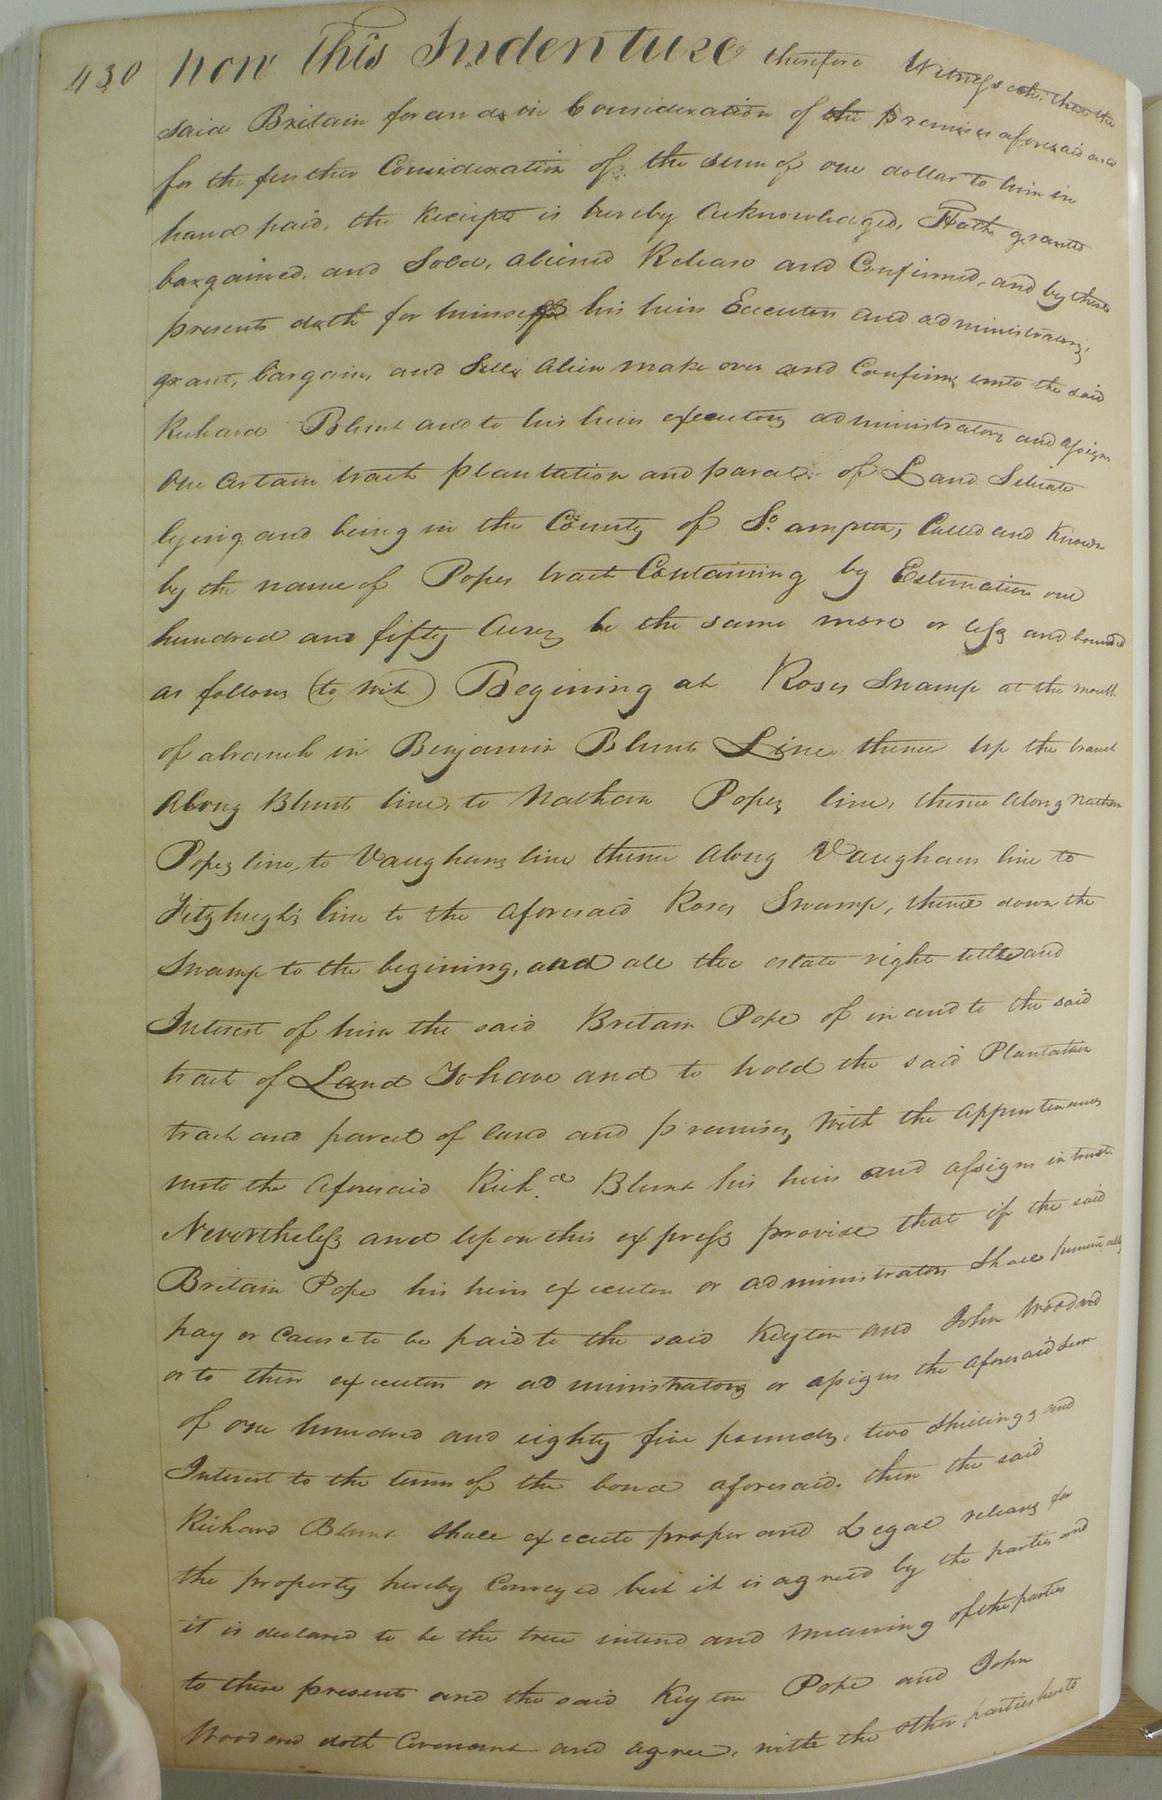 430 Now This Indenture therefore Witnesseth, that the
said Britain for and in Consideration of the Premises aforesaid and
for the further Consideration of the sum of one dollar to him in
hand paid, the Receipt is hereby acknowledged, Hath granted
bargained, and Sold, aliened Release and Confirmed, and by these
presents doth for himself his heirs Executors and administrators,
grant, bargain, and Sell, alien make over and Confirm unto the said
Richard Blunt and to his heirs executors administrators and assigns
One Certain tract plantation and parcel of Land Situate
lying and being in the County of So. ampton, Called and Known
by the name of Popes tract Containing by Estimation one
hundred and fifty Acres be the same more or less and bounded
as follows (to wit) Begining at Roses Swamp at the mouth
of a branch in Benjamin Blunts Line thence up the branch
Along Blunts line, to Nathan Popes line, thence along Nathan
Popes line, to Vaughans line thence along Vaughans line to
Fitzhugh's line to the aforesaid Roses Swamp, thence down the
Swamp to the begining, and all the estate right title and
Interest of him the said Britain Pope of in and to the said
tract of Land To have and to hold the said Plantation
tract and parcel of land and premises, With the appurtenances
unto the aforesaid Richd. Blunt his heirs and assigns in trust
Nevertheless and upon this express provise that if the said
Britain Pope his heirs executors or administrators shall punctually
pay or cause to be paid to the said Keyton and John Woodard
or to their executors or administrators or assigns the aforesaid sum
of one hundred and eighty five pounds, two shillings and
Interest to the terms of the bond aforesaid. then the said
Richard Blunt shall execute proper and Legal releases for
the property hereby Conveyed but it is agreed by the parties and
it is declared to be the true intend and meaning of the parties
to these presents and the said Keyton Pope and John
Woodard doth Covenant and agree, with the other parties hereto